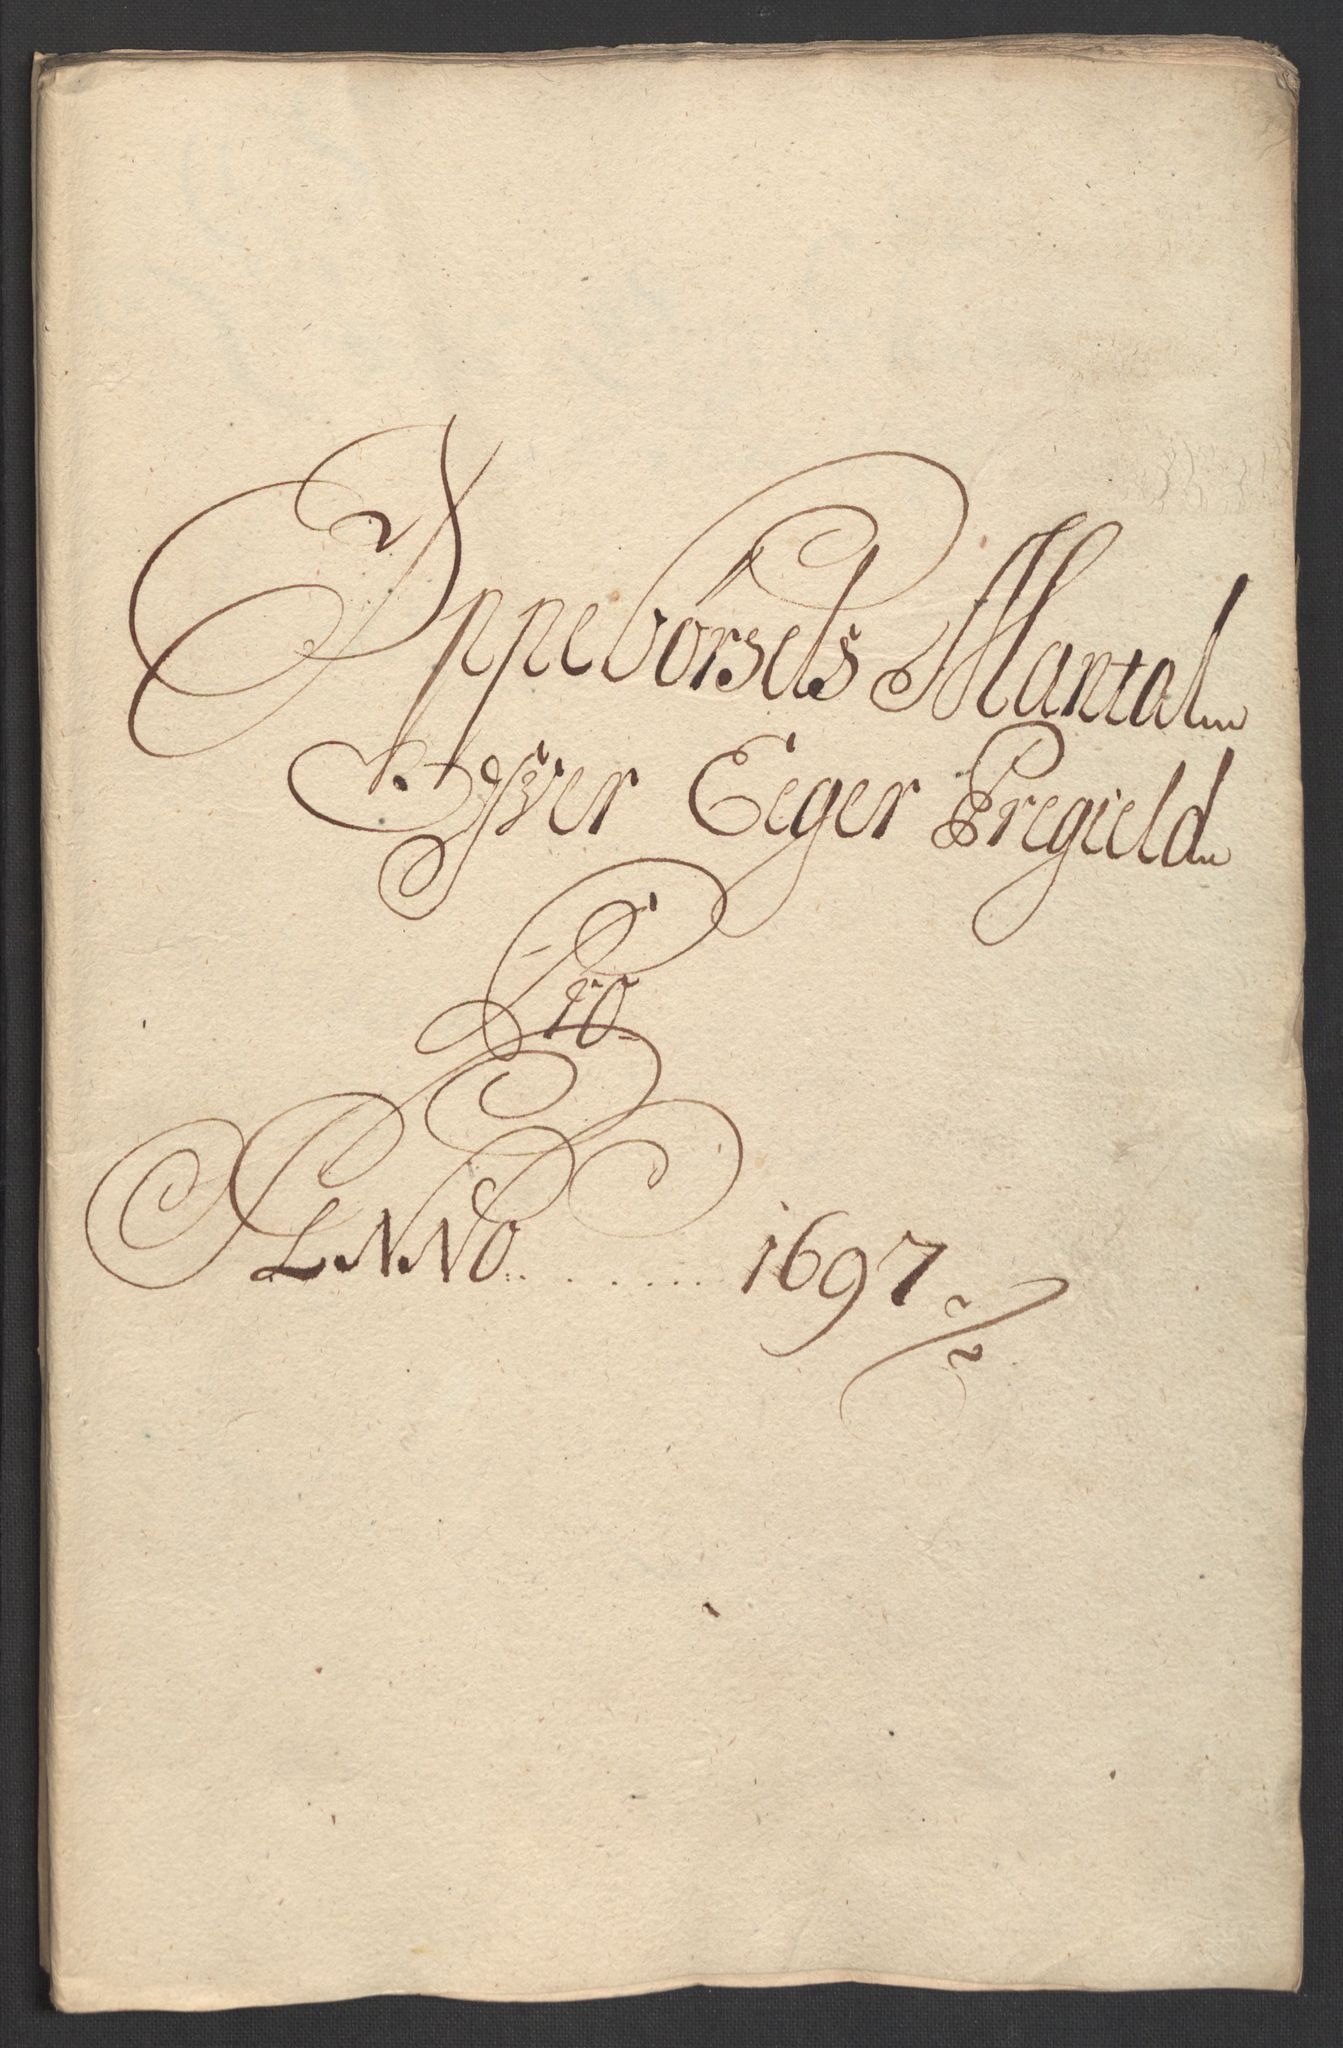 Oppebørsels Mantal
Ofver Eeger Pregield
Pro
ANNO ...... 1697